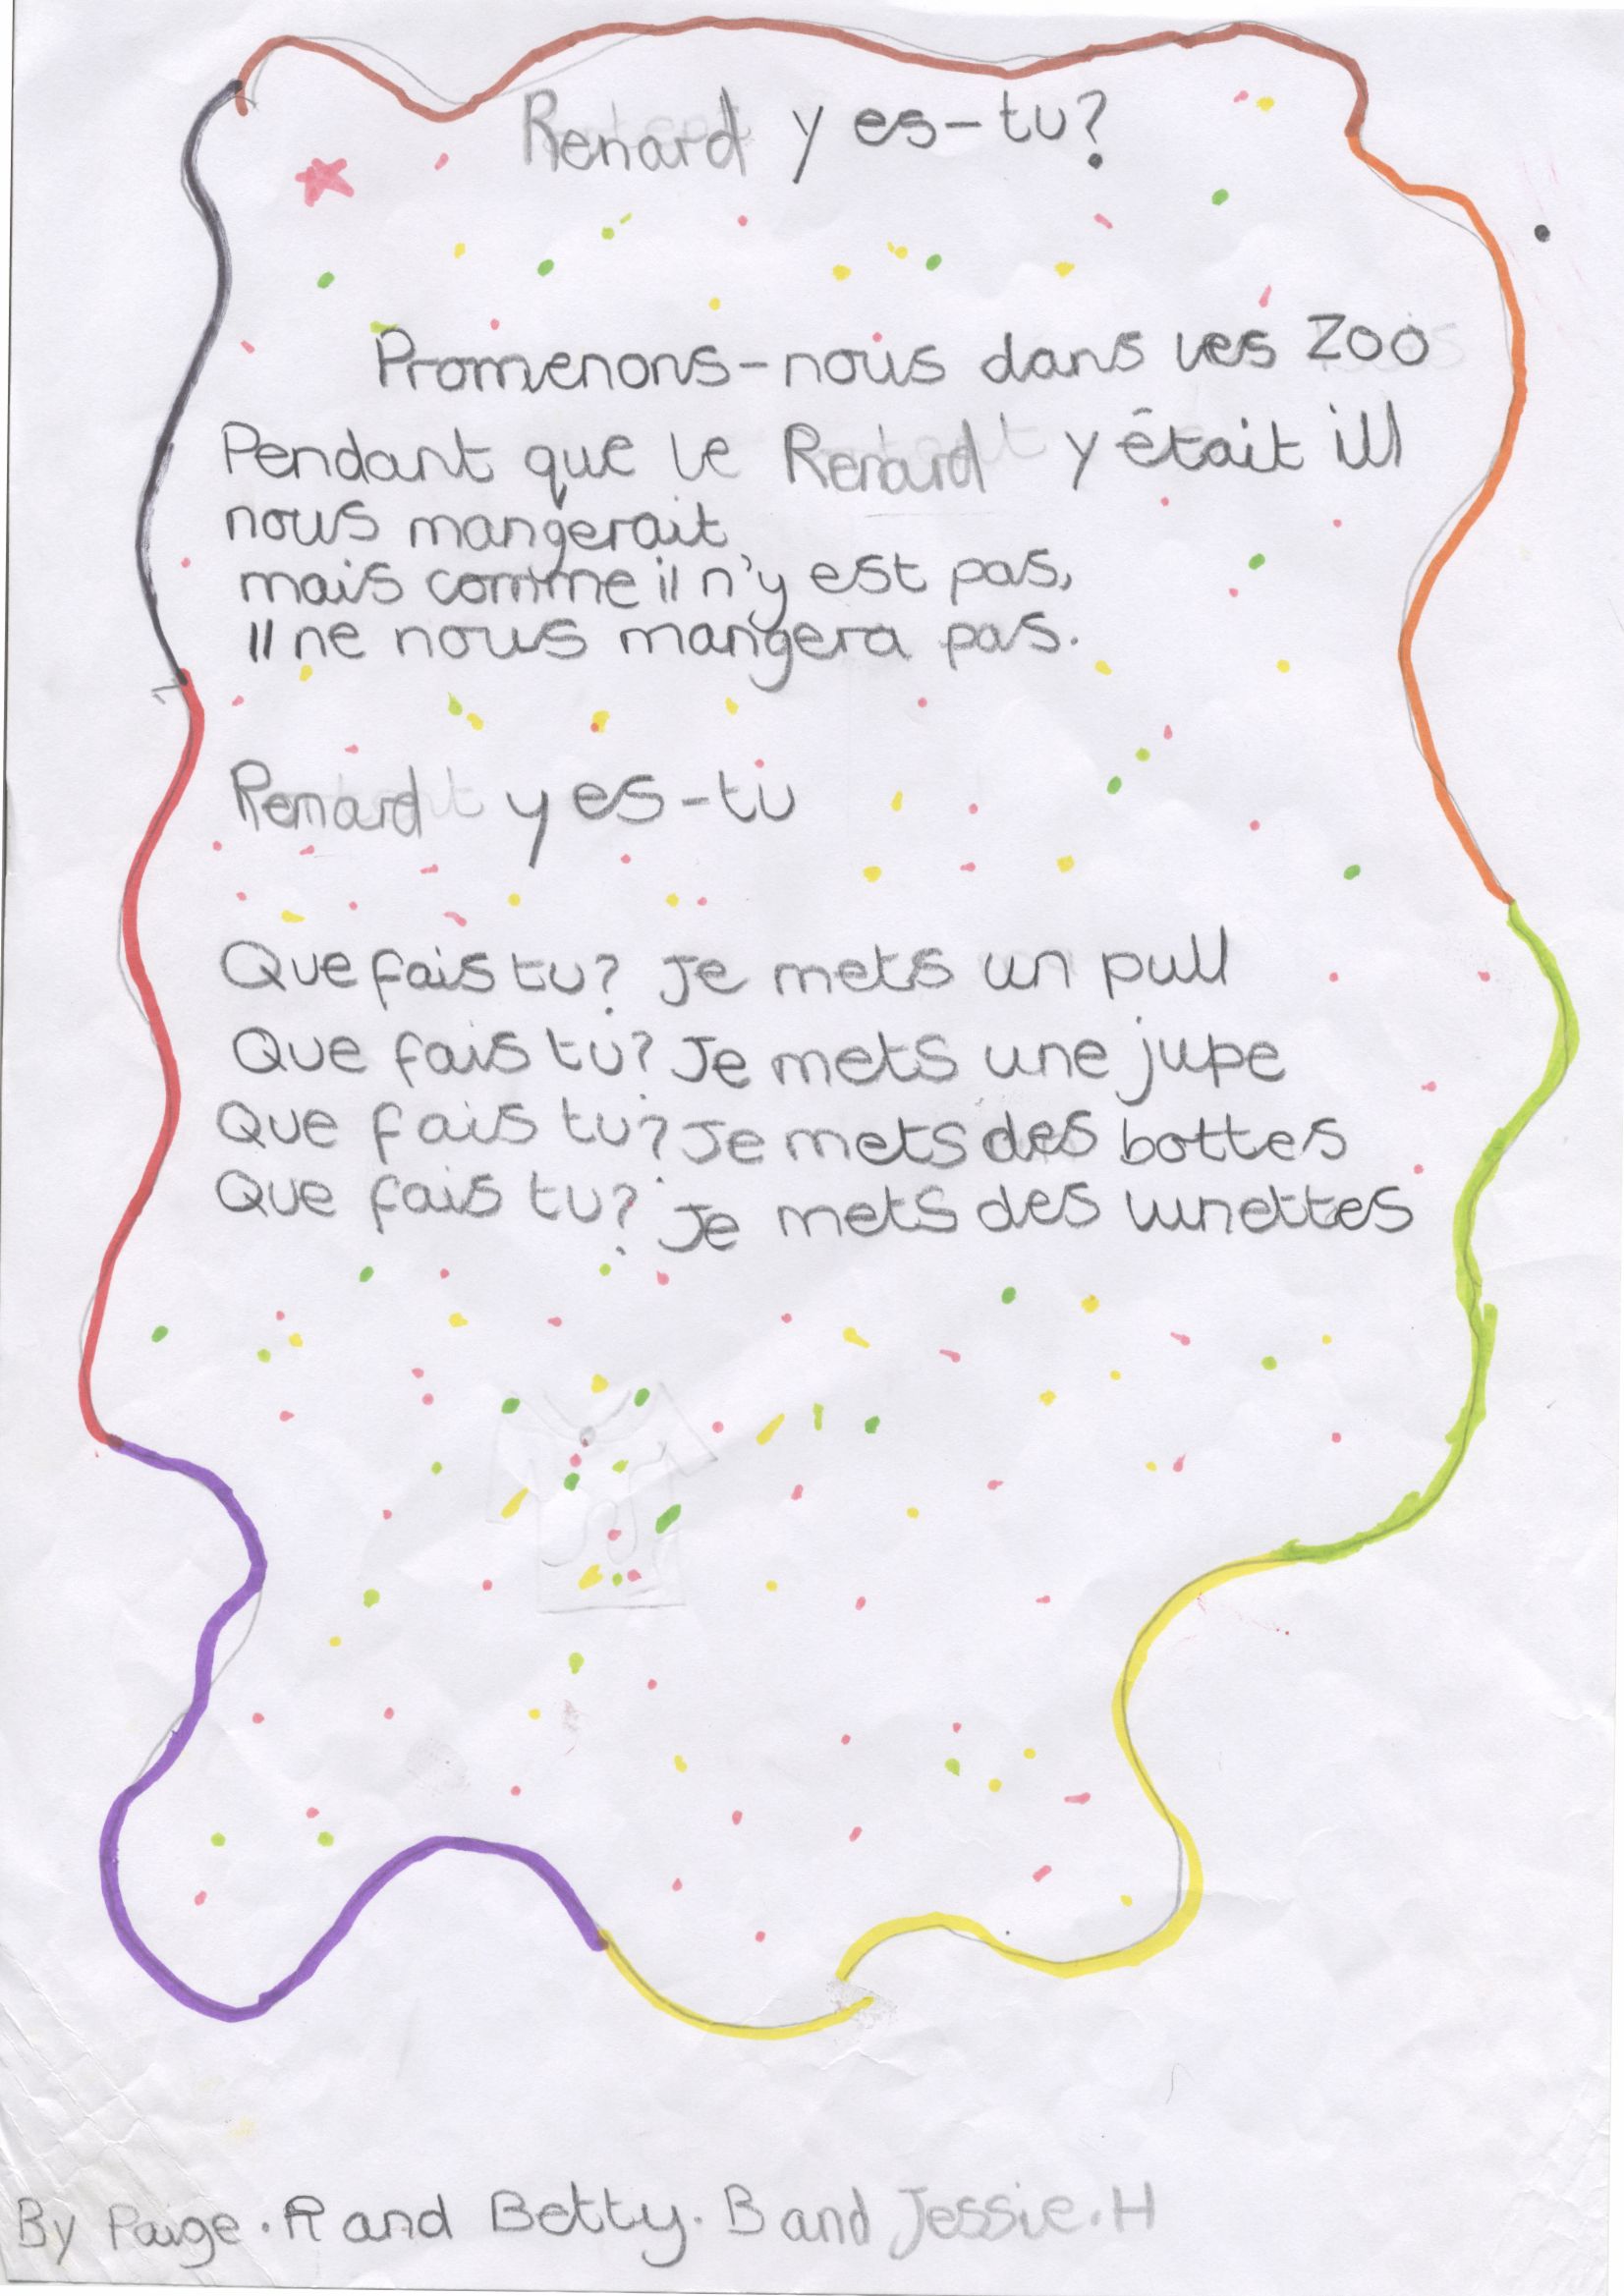 Renard y es-tu?
Promenons-nous dans les Zoo
Pendant que le Renard y était ill
nous mangerait
mais comme il n'y est pas,
Il ne nous mangera pas.
Renard y es-tu
Que fais tu? Je mets un pull
Que fais tu? Je mets une jupe
Que fais tu? Je mets des bottes
Que fais tu? Je mets des lunettes
By Paige.R and Betty.B and Jessie.H